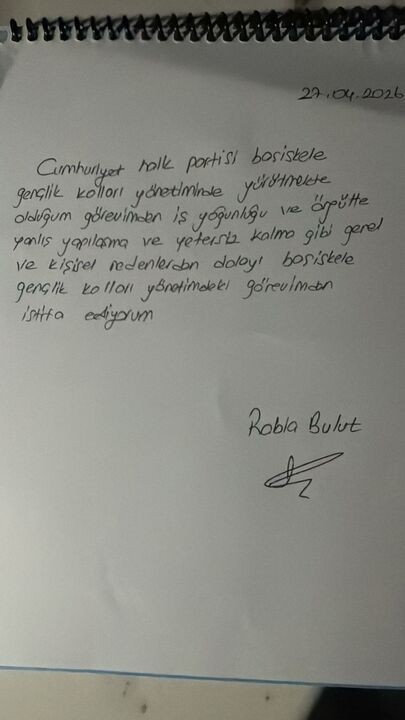 27.04.2026
Cumhuriyet halk partisi başiskele
gençlik kolları yönetiminde yürütmekte
olduğum görevimden iş yoğunluğu ve örgütte
yanlış yapılaşma ve yetersiz kalma gibi genel
ve kişisel nedenlerden dolayı başiskele
gençlik kolları yönetimdeki görevimden
istifa ediyorum
Robla Bulut